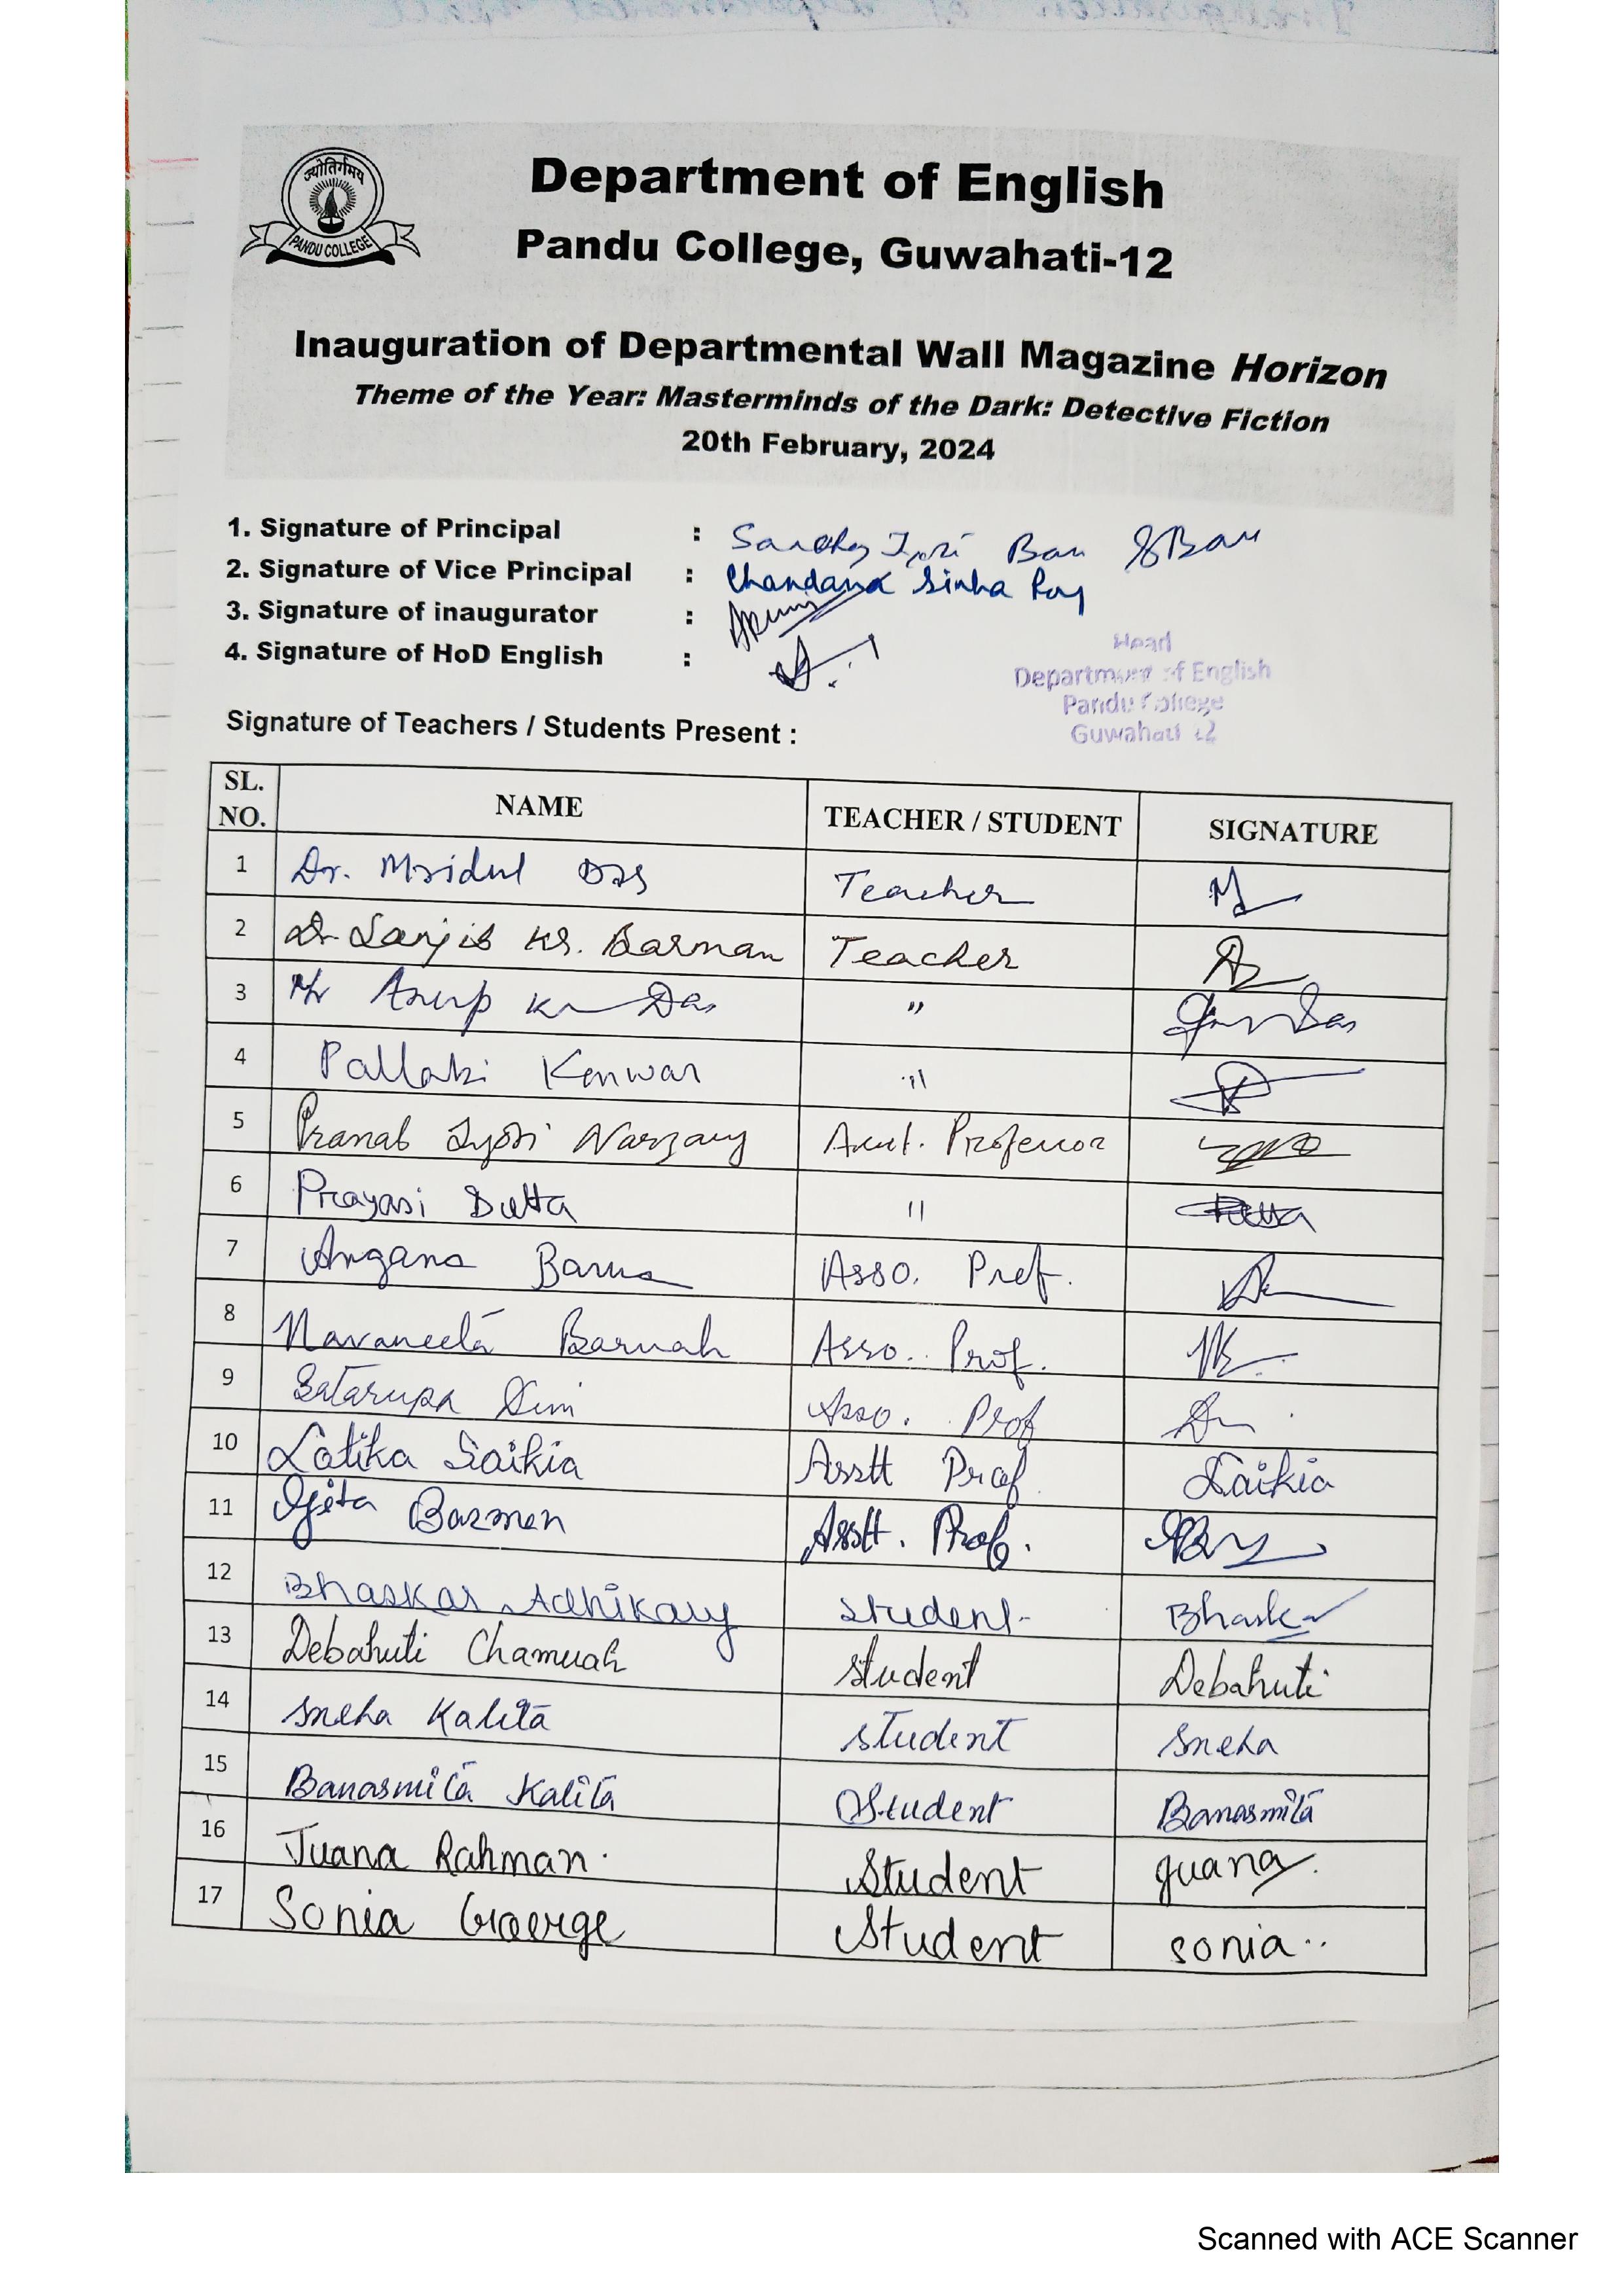 ज्योतिर्गमय
PANDU COLLEGE
Department of English
Pandu College, Guwahati-12
Inauguration of Departmental Wall Magazine Horizon
Theme of the Year: Masterminds of the Dark: Detective Fiction
20th February, 2024
1. Signature of Principal :
2. Signature of Vice Principal : Chandana Sinha Roy
3. Signature of inaugurator :
4. Signature of HoD English :
Head
Department of English
Pandu College
Guwahati 12
Signature of Teachers / Students Present :
SL. NO. NAME TEACHER / STUDENT SIGNATURE
1 Dr. Mridul Das Teacher
2 Dr. Sanjib Kr. Barman Teacher
3 Mr Anup Kr Das "
4 Pallabi Konwar "
5 Pranab Jyoti Narzary Asst. Professor
6 Prayasi Dutta " Dutta
7 Angana Barua Asso. Prof.
8 Navaneeta Baruah Asso. Prof.
9 Satarupa Asso. Prof
10 Latika Saikia Asstt Prof. Saikia
11 Barman Asstt. Prof.
12 Bhaskar Adhikary student Bhaskar
13 Debahuti Chamuah student Debahuti
14 Sneha Kalita student Sneha
15 Banasmita Kalita Student Banasmita
16 Juana Rahman. Student Juana.
17 Sonia Goerge Student sonia..
Scanned with ACE Scanner